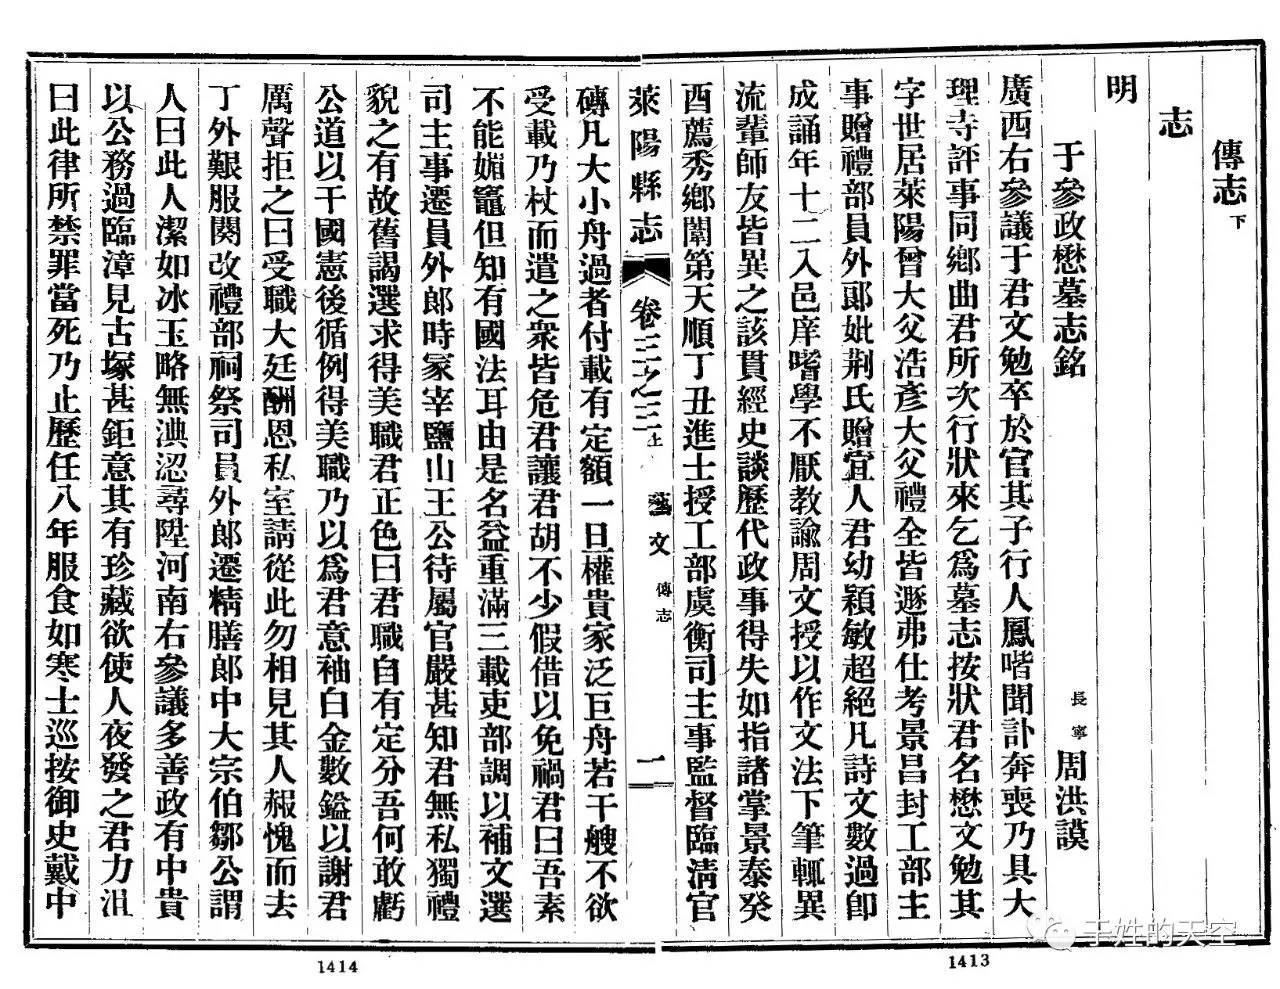 傳志下
志
明
于參政懋墓志銘 長寧周洪謨
廣西右參議于君文勉卒於官其子行人鳳喈聞訃奔喪乃具大
理寺評事同鄉曲君所次行狀來乞爲墓志按狀君名懋文勉其
字世居萊陽曾大父浩彥大父禮全皆遯弗仕考景昌封工部主
事贈禮部員外郎妣荆氏贈宜人君幼穎敏超絕凡詩文數過卽
成誦年十二入邑庠嗜學不厭教諭周文授以作文法下筆輒異
流輩師友皆異之該貫經史談歷代政事得失如指諸掌景泰癸
酉薦秀鄉闈第天順丁丑進士授工部虞衡司主事監督臨淸官
萊陽縣志 卷三之三上 藝文 傳志 一
磚凡大小舟過者付載有定額一旦權貴家泛巨舟若干艘不欲
受載乃杖而遣之衆皆危君讓君胡不少假借以免禍君曰吾素
不能媚竈但知有國法耳由是名益重滿三載吏部調以補文選
司主事遷員外郎時冢宰鹽山王公待屬官嚴甚知君無私獨禮
貌之有故舊謁選求得美職君正色曰君職自有定分吾何敢虧
公道以干國憲後循例得美職乃以爲君意袖白金數鎰以謝君
厲聲拒之曰受職大廷酬恩私室請從此勿相見其人赧愧而去
丁外艱服闋改禮部祠祭司員外郎遷精膳郎中大宗伯鄒公謂
人曰此人潔如冰玉略無淟涊尋陞河南右參議多善政有中貴
以公務過臨漳見古塚甚鉅意其有珍藏欲使人夜發之君力沮
曰此律所禁罪當死乃止歷任八年服食如寒士巡按御史戴中
1414
1413
于姓的天空